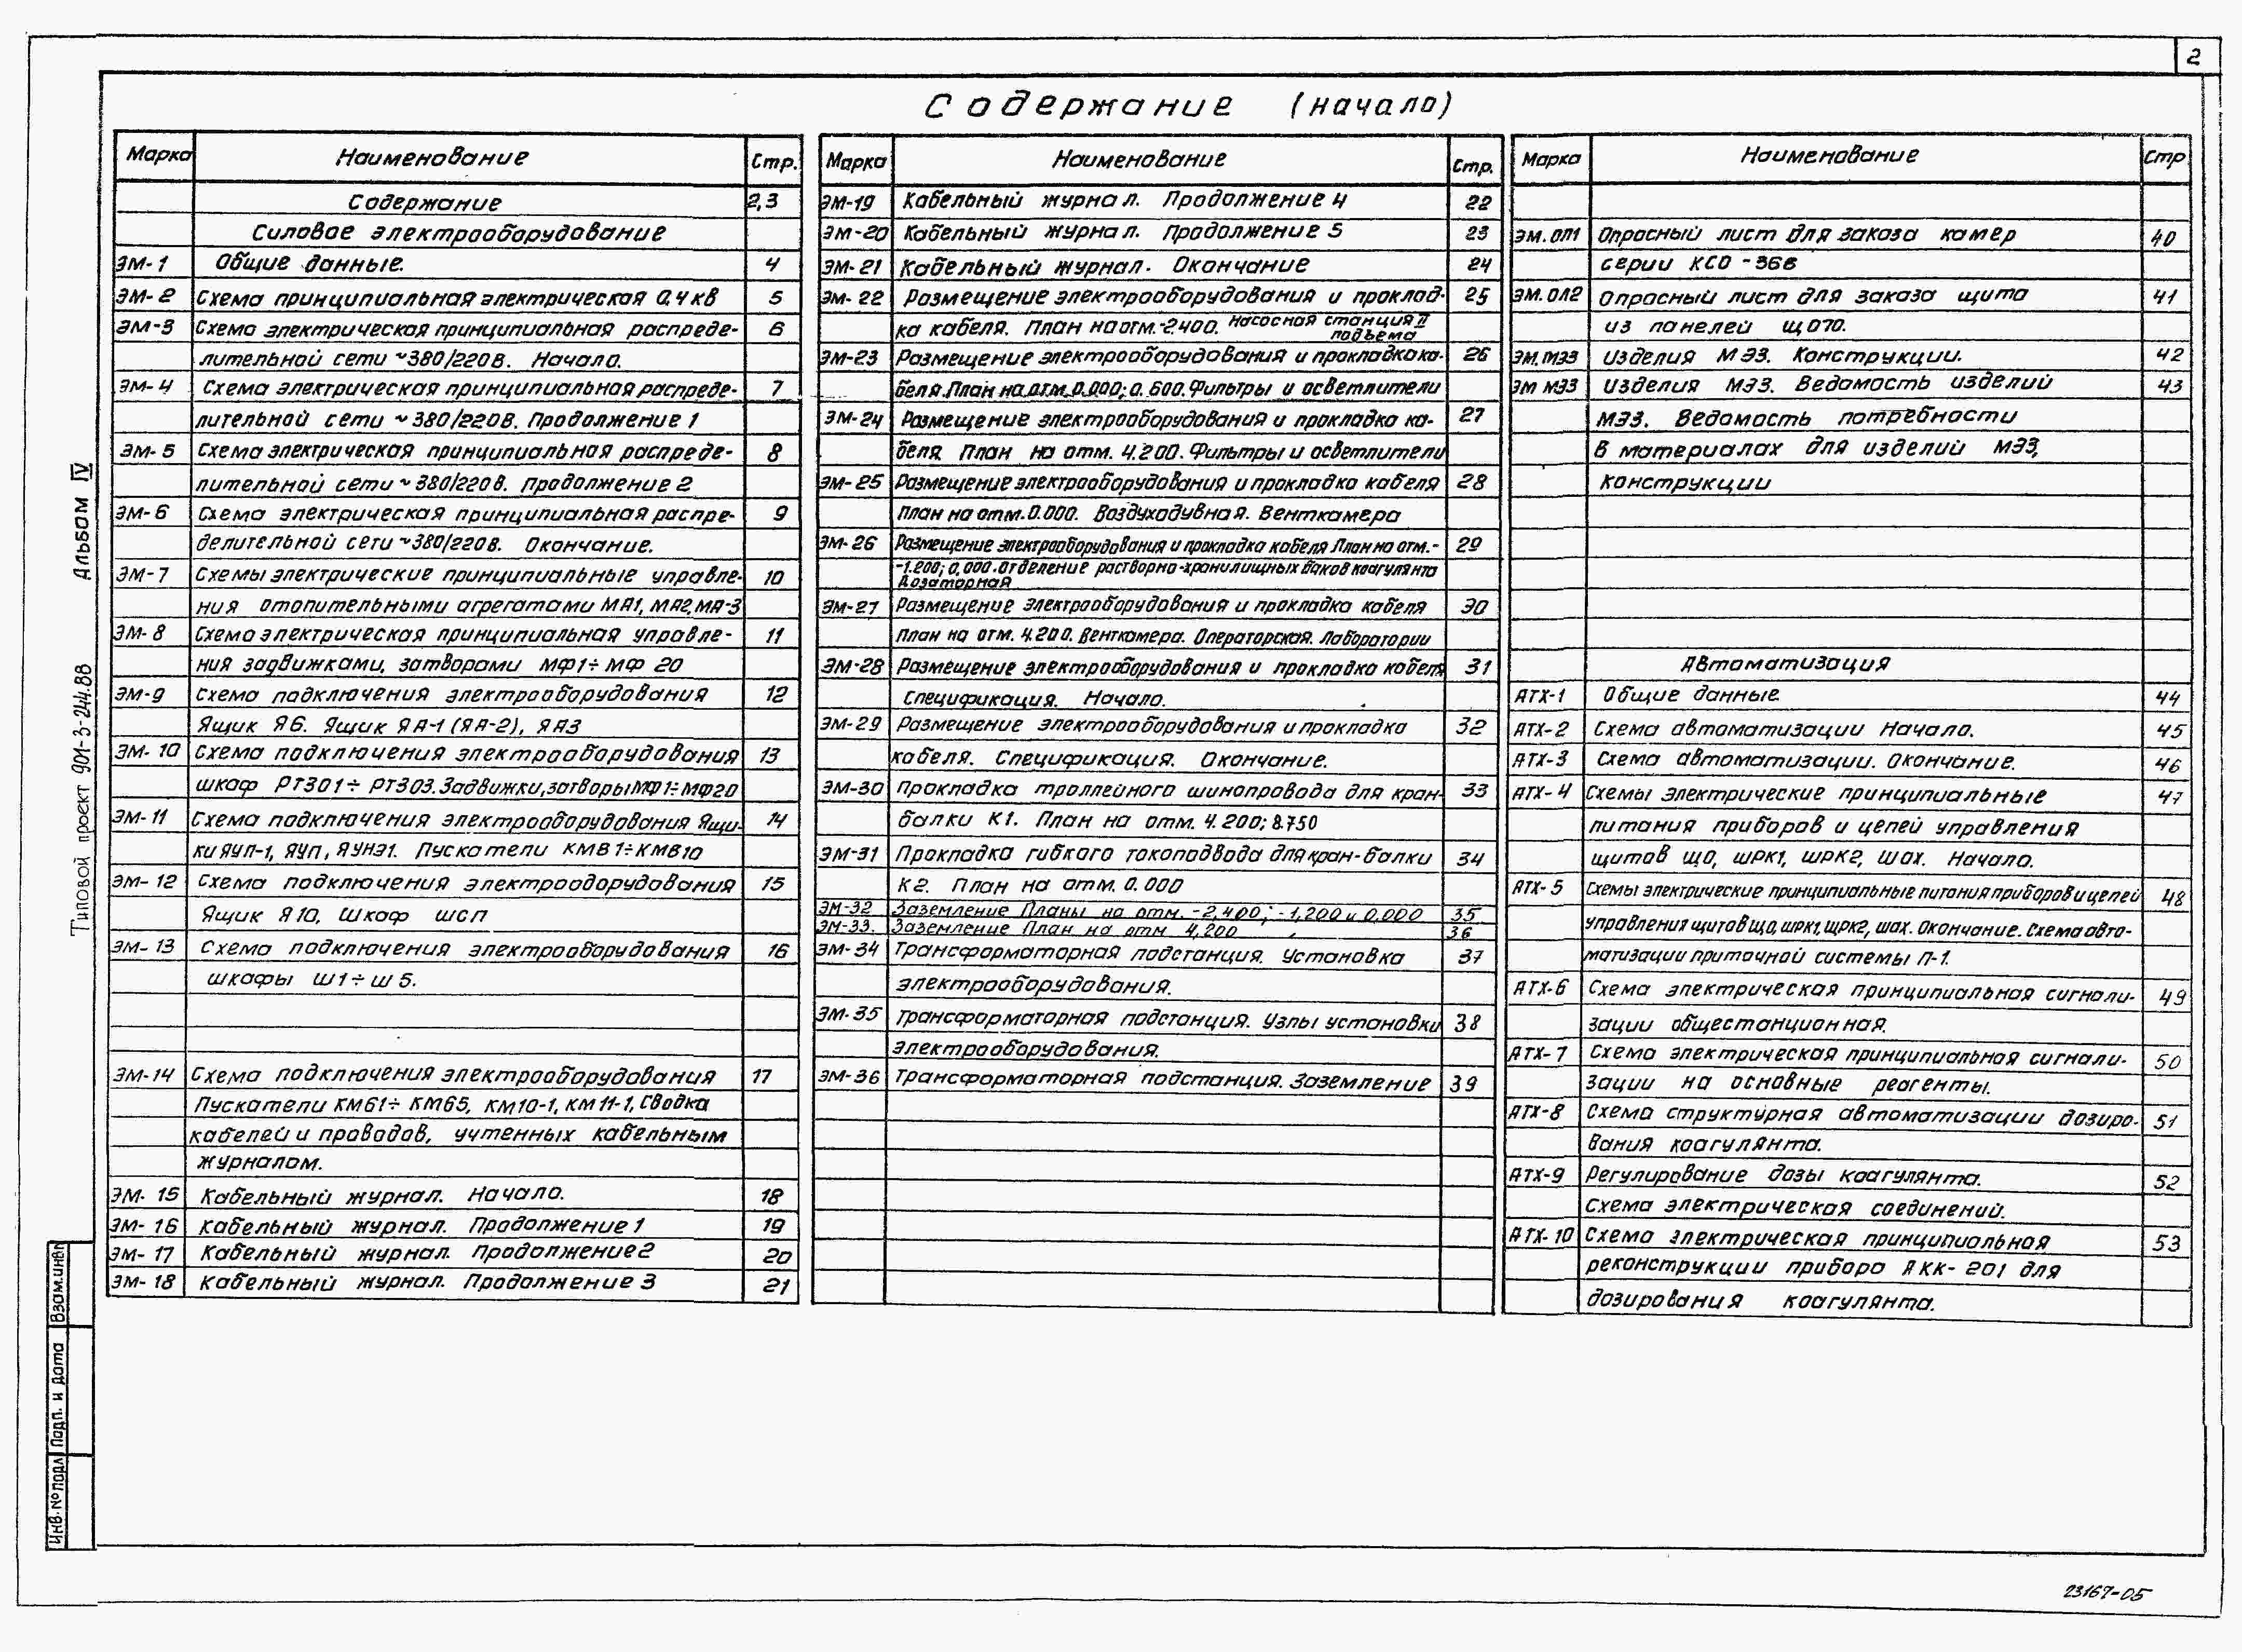 2
Содержание (начало)
Марка Наименование Стр.
Содержание 2,3
Силовое электрооборудование
ЭМ-1 Общие данные. 4
ЭМ-2 Схема принципиальная электрическая 0,4 кв 5
ЭМ-3 Схема электрическая принципиальная распреде- 6
лительной сети ~380/220В. Начало.
ЭМ-4 Схема электрическая принципиальная распреде- 7
лительной сети ~380/220В. Продолжение 1
ЭМ-5 Схема электрическая принципиальная распреде- 8
лительной сети ~380/220В. Продолжение 2
ЭМ-6 Схема электрическая принципиальная распре- 9
делительной сети ~380/220В. Окончание.
ЭМ-7 Схемы электрические принципиальные управле- 10
ния отопительными агрегатами МА1, МА2, МА-3
ЭМ-8 Схема электрическая принципиальная управле- 11
ния задвижками, затворами МФ1÷МФ 20
ЭМ-9 Схема подключения электрооборудования 12
Ящик Я6. Ящик ЯА-1 (ЯА-2), ЯА3
ЭМ-10 Схема подключения электрооборудования 13
шкаф РТ301÷ РТ303. Задвижки, затворы МФ1÷МФ20
ЭМ-11 Схема подключения электрооборудования Ящи- 14
ки ЯУП-1, ЯУП, ЯУНЭ1. Пускатели КМВ1÷КМВ10
ЭМ-12 Схема подключения электрооборудования 15
Ящик Я10, Шкаф ШСП
ЭМ-13 Схема подключения электрооборудования 16
шкафы Ш1÷Ш5.
ЭМ-14 Схема подключения электрооборудования 17
Пускатели КМ61÷ КМ65, КМ10-1, КМ11-1, Сводка
кабелей и проводов, учтенных кабельным
журналом.
ЭМ-15 Кабельный журнал. Начало. 18
ЭМ-16 Кабельный журнал. Продолжение 1 19
ЭМ-17 Кабельный журнал. Продолжение 2 20
ЭМ-18 Кабельный журнал. Продолжение 3 21
Марка Наименование Стр.
ЭМ-19 Кабельный журнал. Продолжение 4 22
ЭМ-20 Кабельный журнал. Продолжение 5 23
ЭМ-21 Кабельный журнал. Окончание 24
ЭМ-22 Размещение электрооборудования и проклад- 25
ка кабеля. План на отм.-2.400. Насосная станция II
подъема
ЭМ-23 Размещение электрооборудования и прокладка ка- 26
беля. План на отм. 0.000; 0.600. Фильтры и осветлители
ЭМ-24 Размещение электрооборудования и прокладка ка- 27
беля. План на отм. 4.200. Фильтры и осветлители
ЭМ-25 Размещение электрооборудования и прокладка кабеля 28
План на отм. 0.000. Воздуходувная. Венткамера
ЭМ-26 Размещение электрооборудования и прокладка кабеля План на отм.- 29
-1.200; 0,000. Отделение растворно-хранилищных баков коагулянта
Дозаторная
ЭМ-27 Размещение электрооборудования и прокладка кабеля 30
План на отм. 4.200. Венткамера. Операторская. Лаборатории
ЭМ-28 Размещение электрооборудования и прокладка кабеля 31
Спецификация. Начало.
ЭМ-29 Размещение электрооборудования и прокладка 32
кабеля. Спецификация. Окончание.
ЭМ-30 Прокладка троллейного шинопровода для кран- 33
балки К1. План на отм. 4.200; 8.750
ЭМ-31 Прокладка гибкого токоподвода для кран-балки 34
К2. План на отм. 0.000
ЭМ-32 Заземление Планы на отм. -2,400; -1,200 и 0,000 35
ЭМ-33. Заземление План на отм 4,200 36
ЭМ-34 Трансформаторная подстанция. Установка 37
электрооборудования.
ЭМ-35 Трансформаторная подстанция. Узлы установки 38
электрооборудования.
ЭМ-36 Трансформаторная подстанция. Заземление 39
Марка Наименование Стр
ЭМ.ОЛ1 Опросный лист для заказа камер 40
серии КСО-366
ЭМ.ОЛ2 Опросный лист для заказа щита 41
из панелей ЩО70.
ЭМ.МЭЗ Изделия МЭЗ. Конструкции. 42
ЭМ МЭЗ Изделия МЭЗ. Ведомость изделий 43
МЭЗ. Ведомость потребности
в материалах для изделий МЭЗ,
конструкции
Автоматизация
АТХ-1 Общие данные. 44
АТХ-2 Схема автоматизации Начало. 45
АТХ-3 Схема автоматизации. Окончание. 46
АТХ-4 Схемы электрические принципиальные 47
питания приборов и цепей управления
щитов ЩО, ШРК1, ШРК2, ШОХ. Начало.
АТХ-5 Схемы электрические принципиальные питания приборов и цепей 48
управления щитов ЩО, ШРК1, ШРК2, ШОХ. Окончание. Схема авто-
матизации приточной системы П-1.
АТХ-6 Схема электрическая принципиальная сигнали- 49
зации общестанционная.
АТХ-7 Схема электрическая принципиальная сигнали- 50
зации на основные реагенты.
АТХ-8 Схема структурная автоматизации дозиро- 51
вания коагулянта.
АТХ-9 Регулирование дозы коагулянта. 52
Схема электрическая соединений.
АТХ-10 Схема электрическая принципиальная 53
реконструкции прибора АКК-201 для
дозирования коагулянта.
Типовой проект 901-3-244.88 Альбом IV
Инв.№подл Подп. и дата Взам.инв№
23167-05